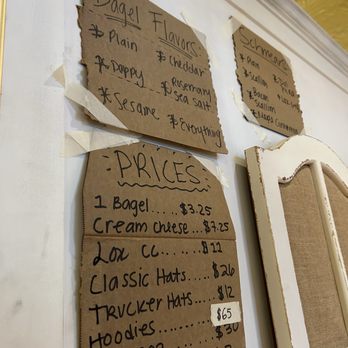 Bagel Flavors
* Plain
* Cheddar
* Poppy
* Rosemary Sea Salt
* Sesame
* Everything
Schmears
* Plain
* Scallion
* Bacon Scallion
PRICES
1 Bagel.....$3.25
Cream Cheese...$7.25
Lox CC.......$11
Classic Hats.....$26
Trucker Hats....$12
Hoodies.........$65
$30